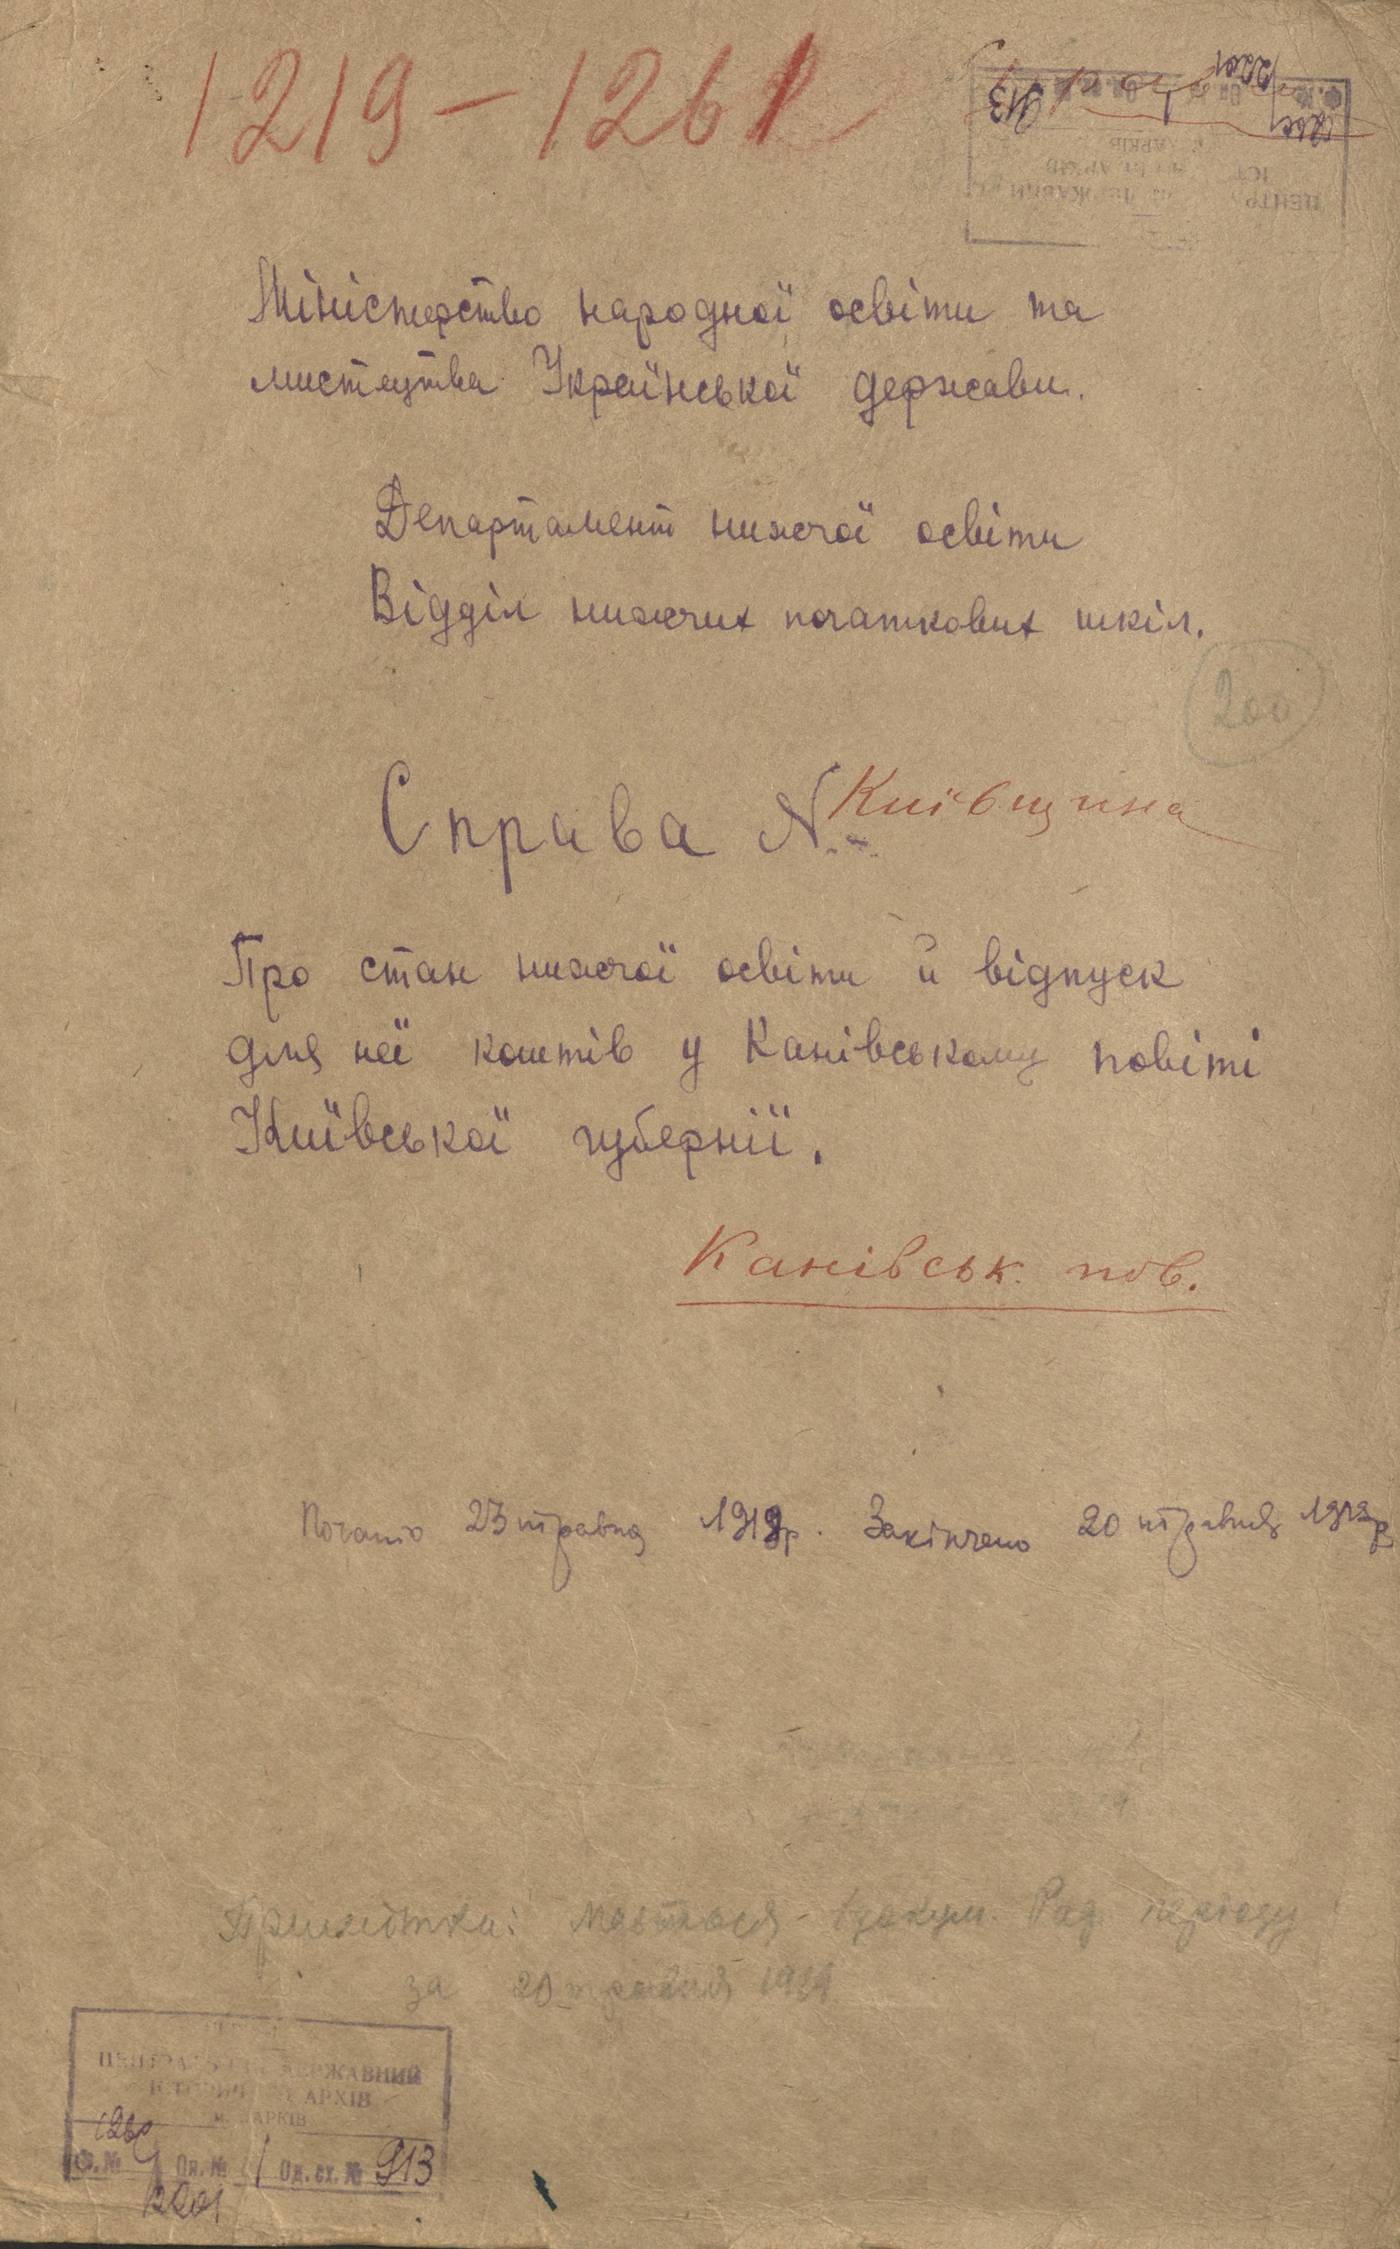 1219-1261
Міністерство народної освіти та
мистецтва Української держави.
Департамент нижчої освіти
Відділ нижчих початкових шкіл.
200
Справа № Київщина
Про стан нижчої освіти й відпуск
для неї коштів у Канівському повіті
Київської губернії.
Канівськ. пов.
Почато 23 травня 1918р. Закінчено 20 травня
Примітка: Рад. періоду
за 20 травня
ЦЕНТРАЛЬНИЙ ДЕРЖАВНИЙ
ІСТОРИЧНИЙ АРХІВ
м. ХАРКІВ
Ф. № Оп. № 1 Од. сх. № 913
2201